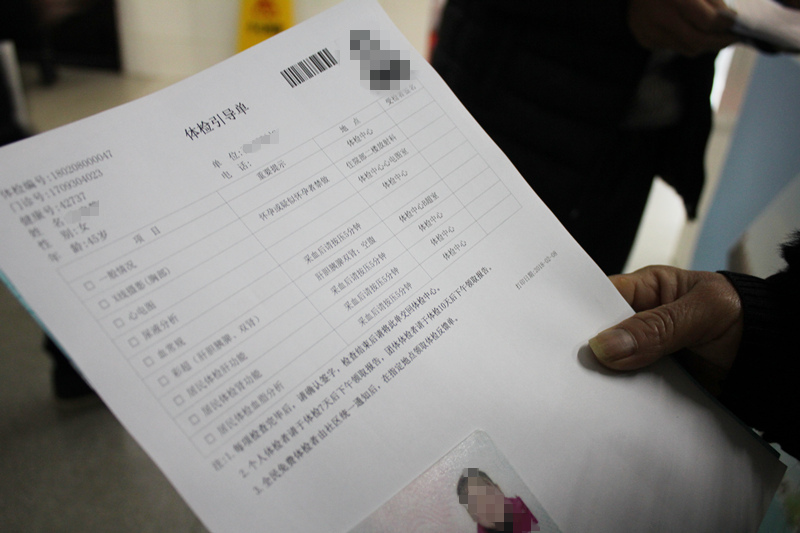 体检引导单
体检编号:180208000047
门诊号:1709304023
健康号:42737
姓 名:
性 别:女
年 龄:45岁
单 位:
电 话:
项 目 重要提示 地 点
□ 一般情况 体检中心
□ X线摄影(胸部) 怀孕或疑似怀孕者禁做 住院部二楼放射科
□ 心电图 体检中心心电图室
□ 尿液分析 体检中心
□ 血常规 采血后请按压5分钟
□ 彩超(肝胆胰脾、双肾) 肝胆胰脾双肾:空腹 体检中心B超室
□ 居民体检肝功能 采血后请按压5分钟 体检中心
□ 居民体检肾功能 采血后请按压5分钟 体检中心
□ 居民体检血脂分析 采血后请按压5分钟 体检中心
注:1.每项检查完毕后,请确认签字,检查结束后请将此单交回体检中心。
2.个人体检者请于体检7天后下午领取报告,团体体检者请于体检10天后下午领取报告。
3.全民免费体检者由社区统一通知后,在指定地点领取体检反馈单。
打印日期:2018-02-08